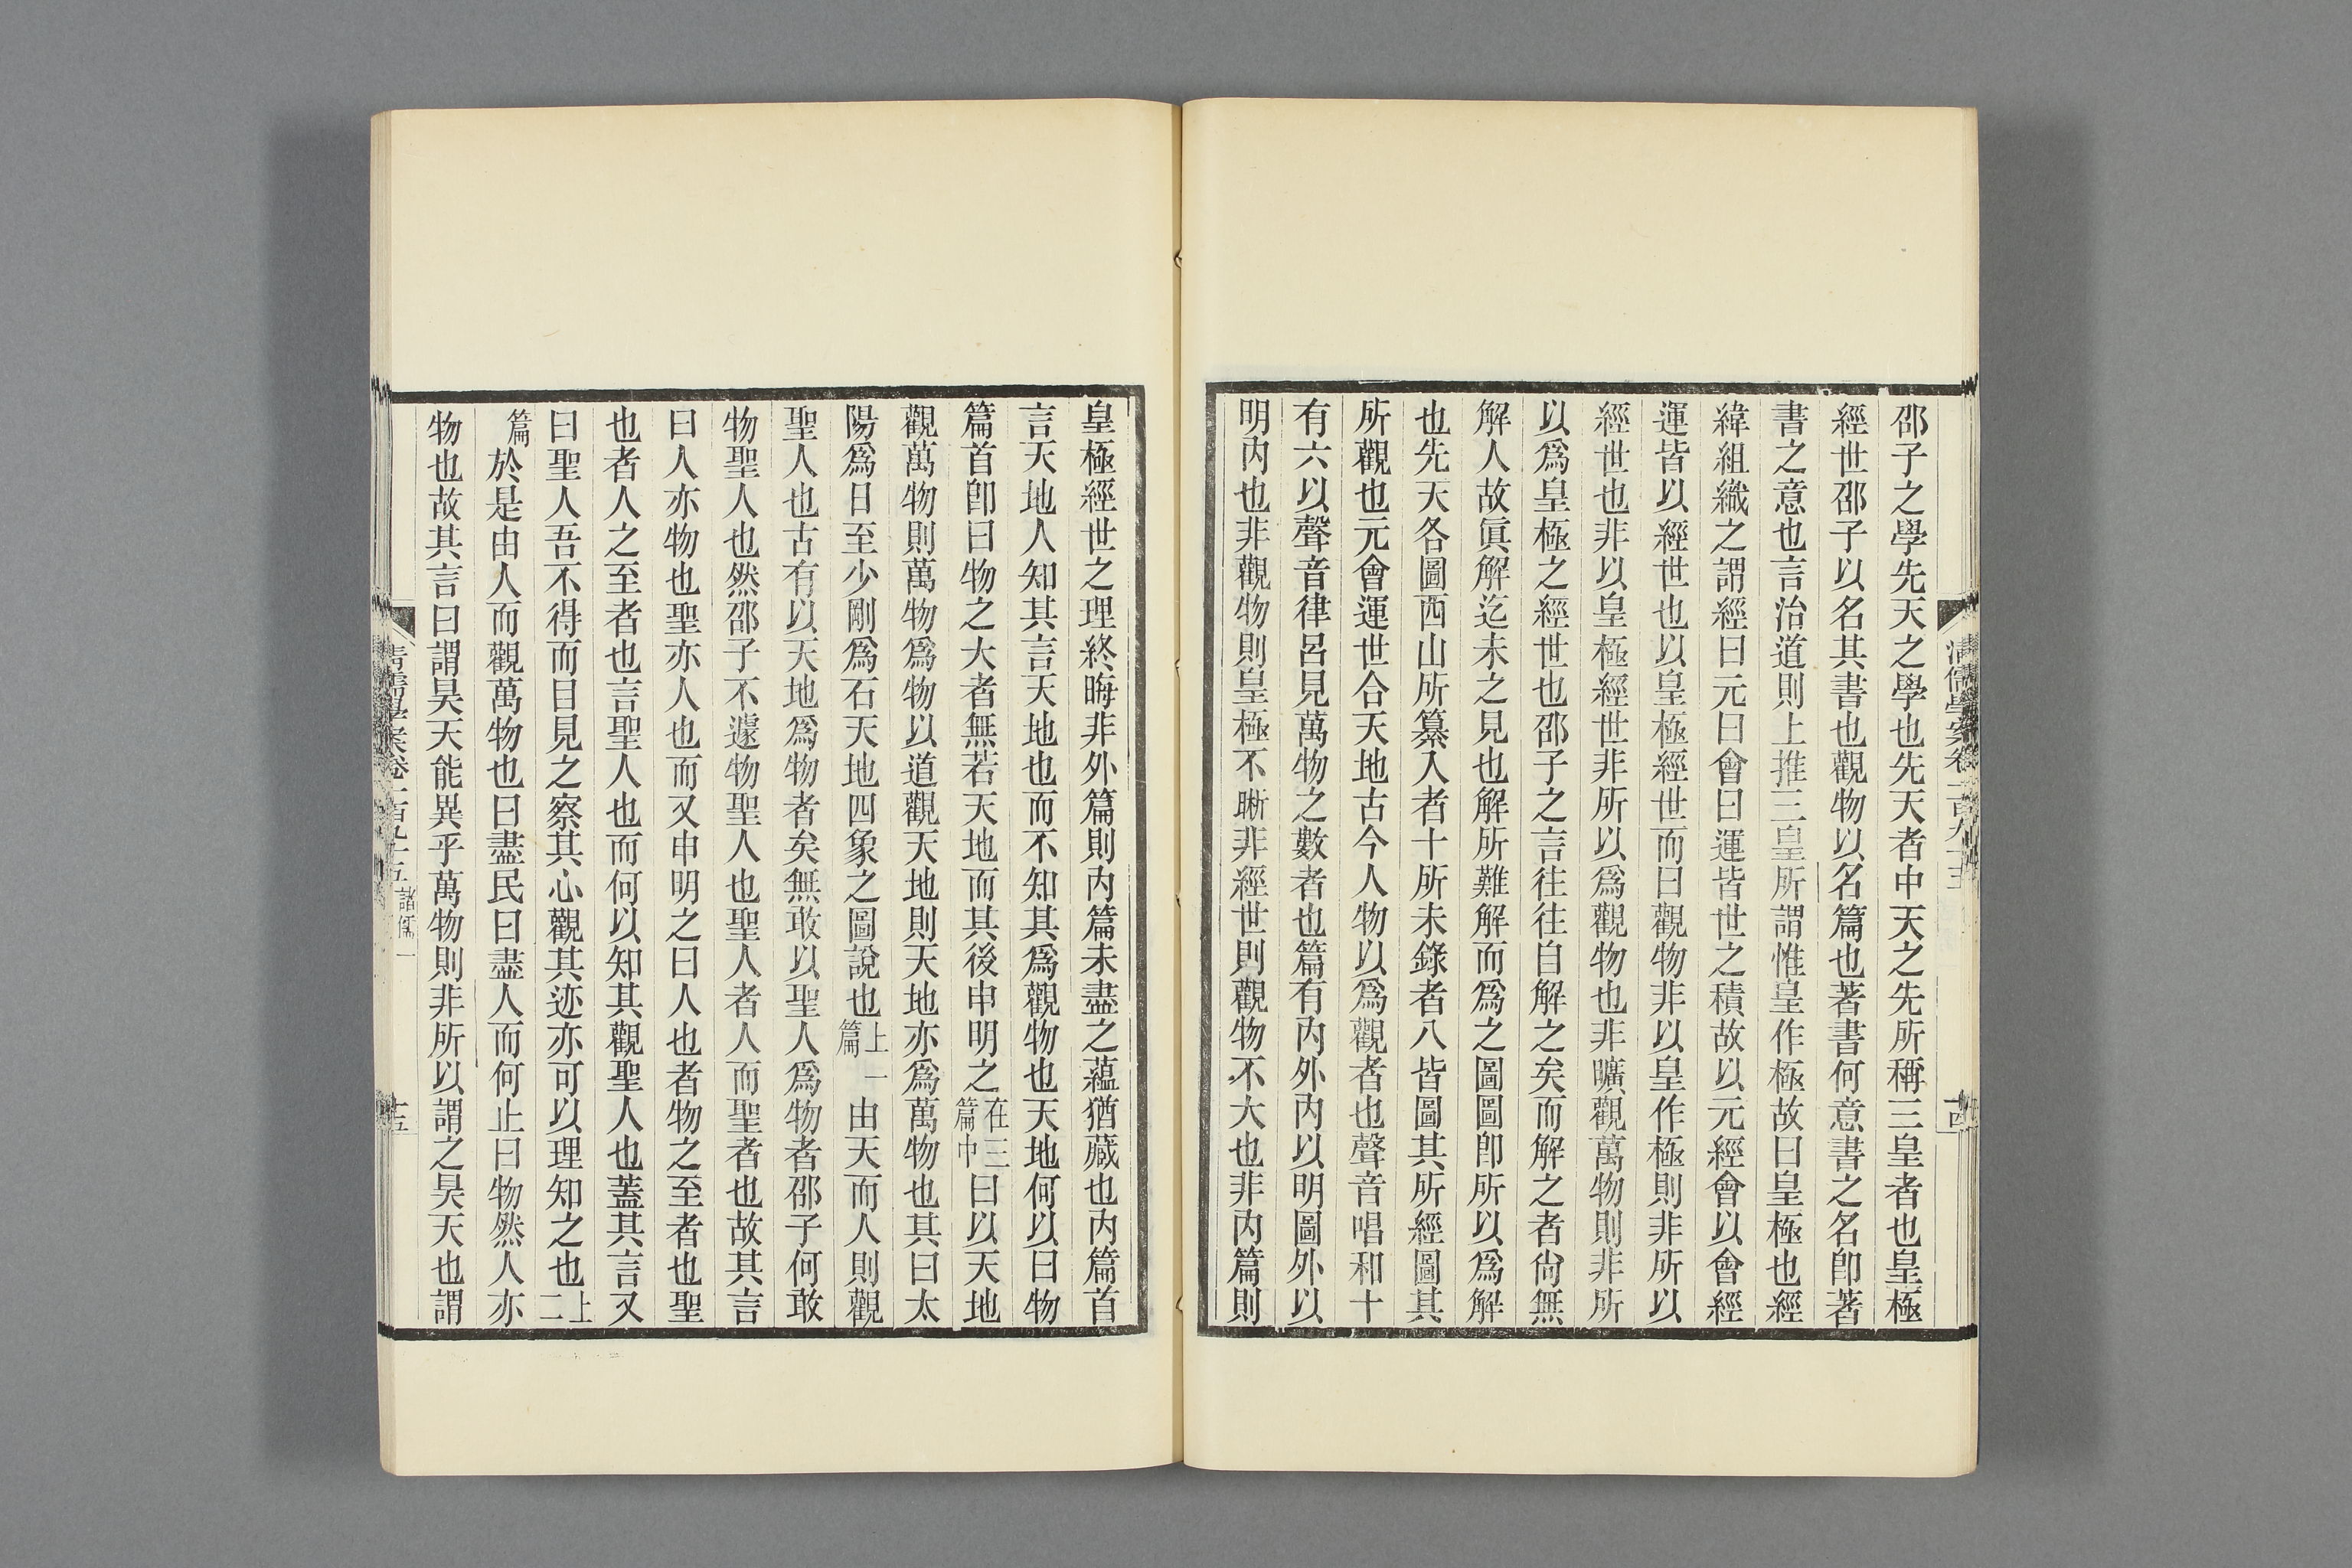 邵子之學先天之學也先天者中天之先所稱三皇者也皇極
經世邵子以名其書也觀物以名篇也著書何意書之名卽著
書之意也言治道則上推三皇所謂惟皇作極故曰皇極也經
緯組織之謂經曰元曰會曰運皆世之積故以元經會以會經
運皆以經世也以皇極經世而曰觀物非以皇作極則非所以
經世也非以皇極經世非所以爲觀物也非曠觀萬物則非所
以爲皇極之經世也邵子之言往往自解之矣而解之者尙無
解人故眞解迄未之見也解所難解而爲之圖圖卽所以爲解
也先天各圖西山所纂入者十所未錄者八皆圖其所經圖其
所觀也元會運世合天地古今人物以爲觀者也聲音唱和十
有六以聲音律呂見萬物之數者也篇有內外內以明圖外以
明內也非觀物則皇極不晰非經世則觀物不大也非內篇則
皇極經世之理終晦非外篇則內篇未盡之蘊猶藏也內篇首
言天地人知其言天地也而不知其爲觀物也天地何以曰物
篇首卽曰物之大者無若天地而其後申明之在三篇中曰以天地
觀萬物則萬物爲物以道觀天地則天地亦爲萬物也其曰太
陽爲日至少剛爲石天地四象之圖說也上一篇由天而人則觀
聖人也古有以天地爲物者矣無敢以聖人爲物者邵子何敢
物聖人也然邵子不遽物聖人也聖人者人而聖者也故其言
曰人亦物也聖亦人也而又申明之曰人也者物之至者也聖
也者人之至者也言聖人也而何以知其觀聖人也蓋其言又
曰聖人吾不得而目見之察其心觀其迹亦可以理知之也上二
篇於是由人而觀萬物也曰盡民曰盡人而何止曰物然人亦
物也故其言曰謂昊天能異乎萬物則非所以謂之昊天也謂
清儒學案卷一百九十五
十四
清儒學案卷一百九十五 諸儒一
十五